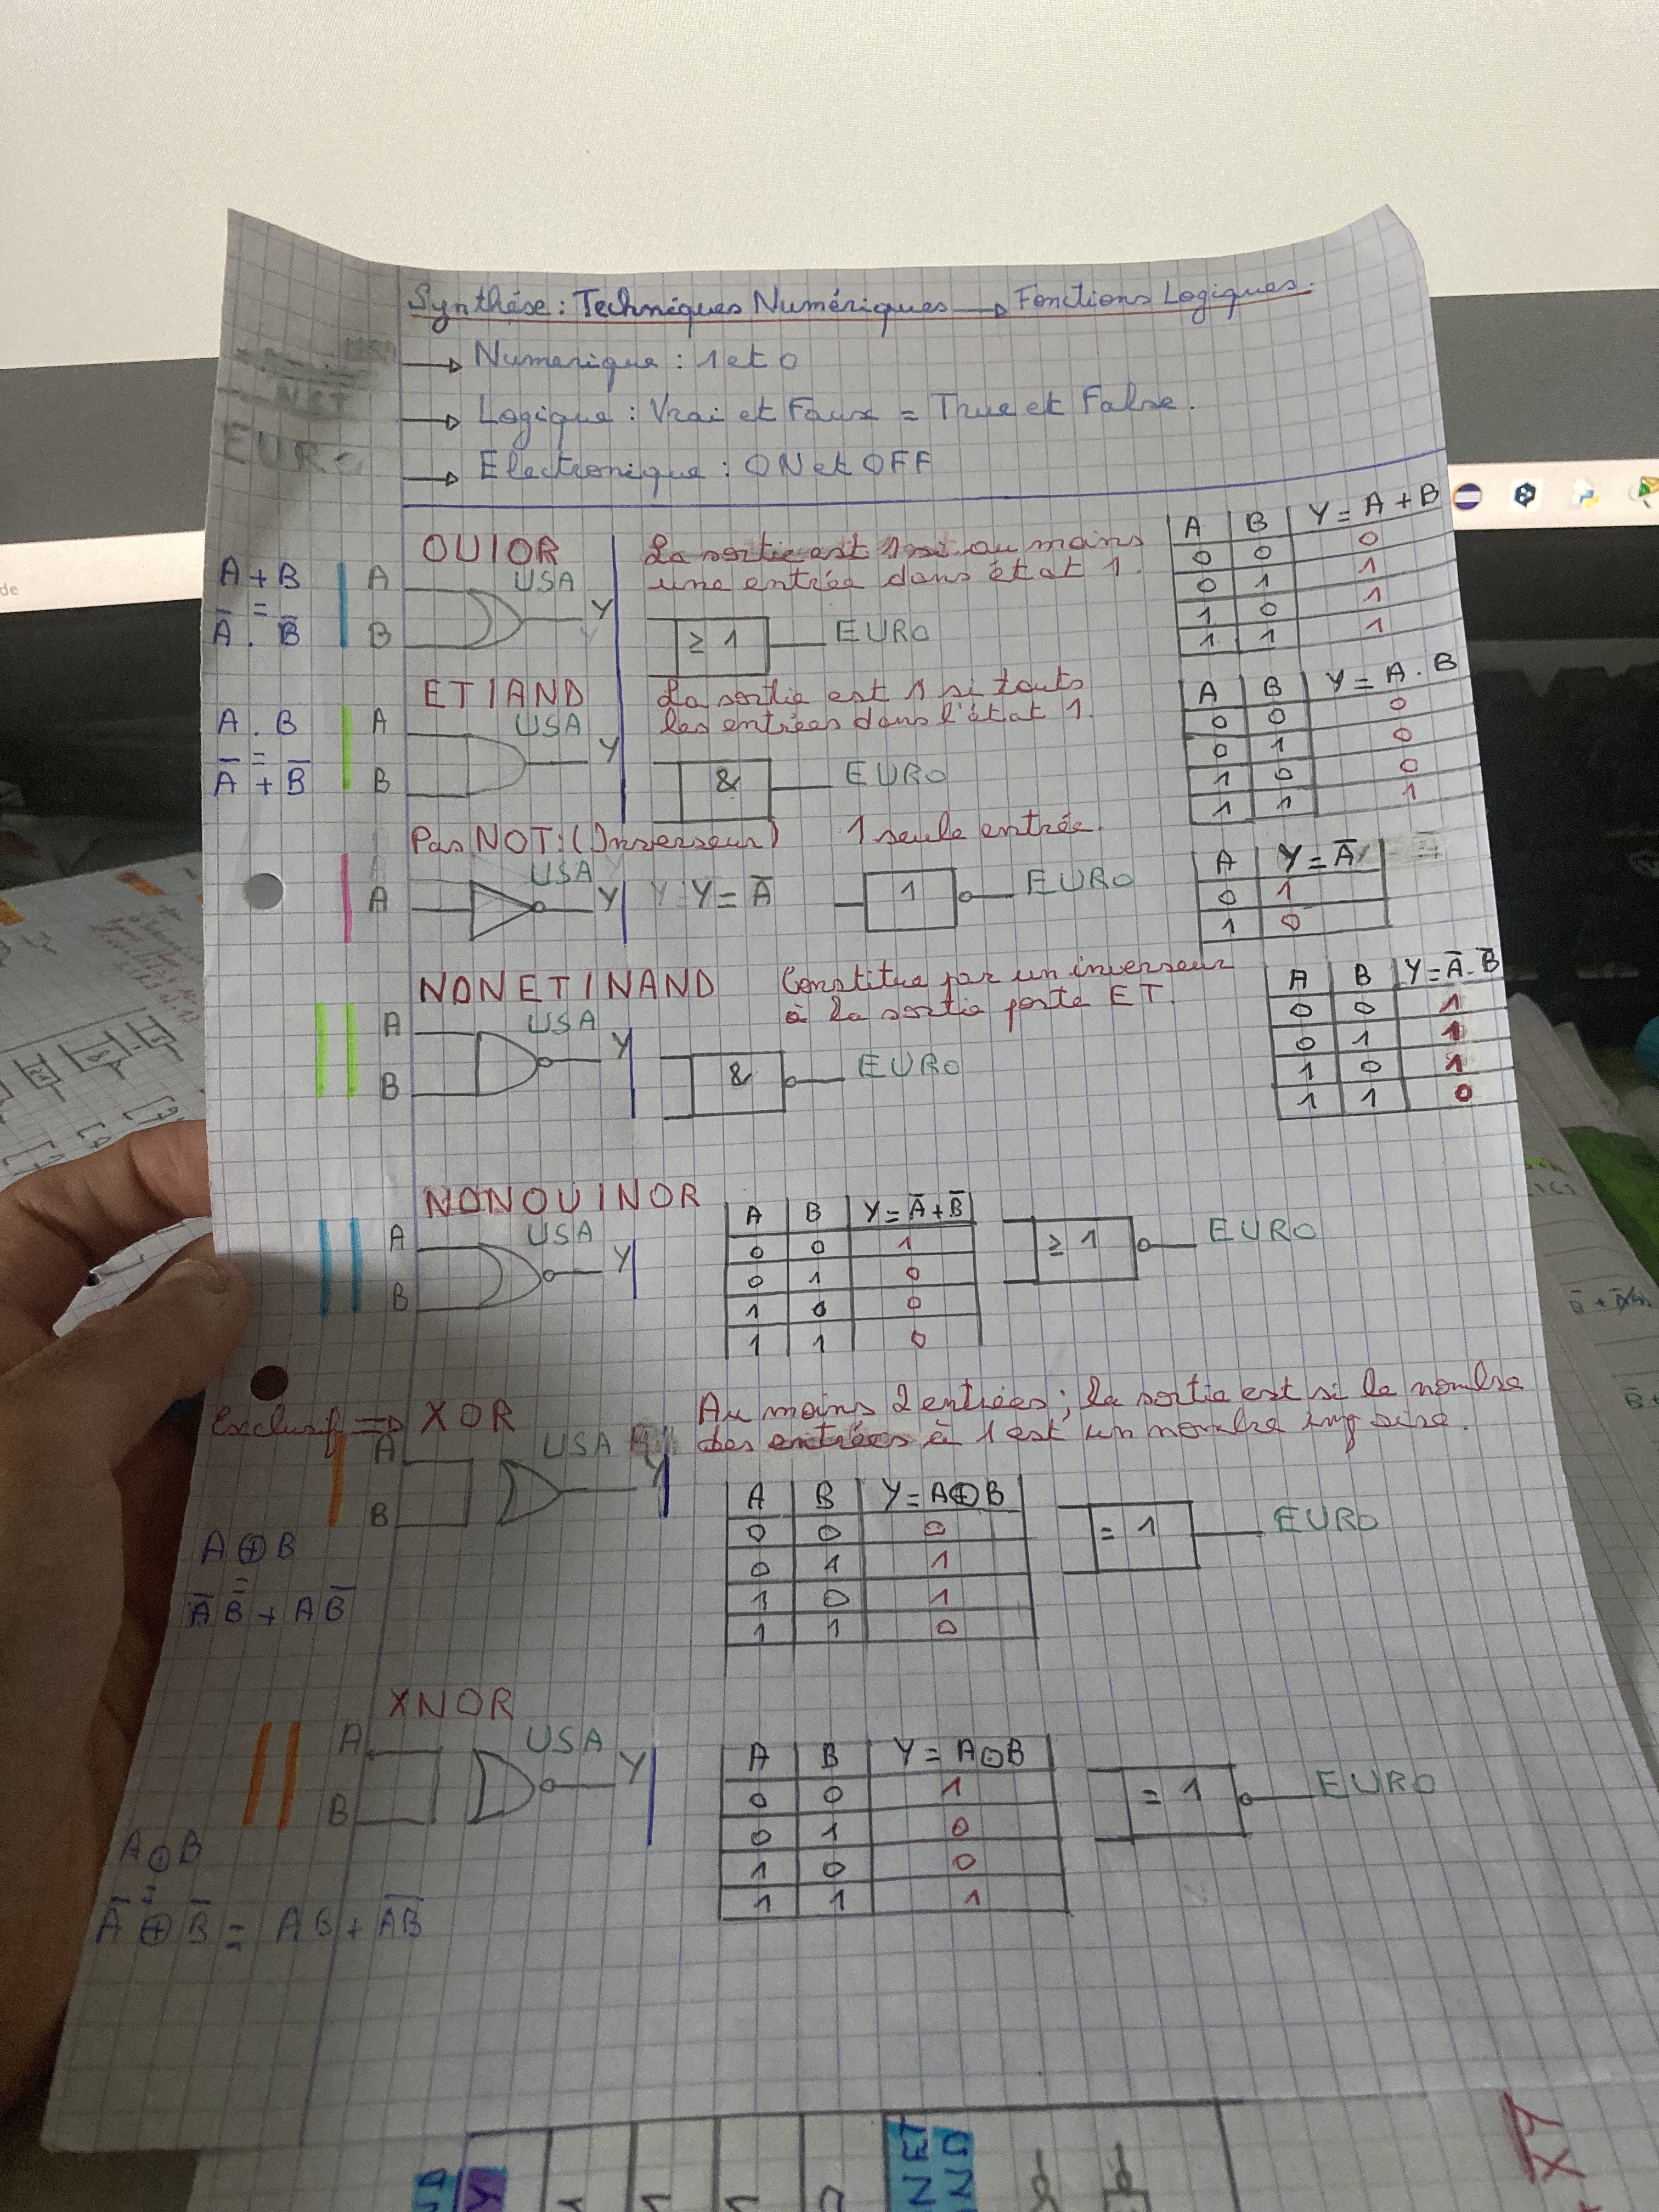 Synthése : Techniques Numériques → Fonctions Logiques.
→ Numerique : 1 et 0
→ Logique : Vrai et Faux = True et False.
→ Electronique : ON et OFF
EURO
A + B
=
A̅ . B̅
OU|OR
USA
A
B
Y
La sortie est 1 si au moins
une entrée dans état 1.
≥ 1
EURO
A B Y = A + B
0 0 0
0 1 1
1 0 1
1 1 1
A . B
=
A̅ + B̅
ET|AND
USA
A
B
Y
La sortie est 1 si touts
les entrées dans l'état 1.
&
EURO
A B Y = A . B
0 0 0
0 1 0
1 0 0
1 1 1
Pas NOT : (Inverseur) 1 seule entrée.
USA
A
Y
Y = A̅
1
EURO
A Y = A̅
0 1
1 0
NONET|NAND
USA
A
B
Y
Constitue par un inverseur
à la sortie porte ET.
&
EURO
A B Y = A̅ . B̅
0 0 1
0 1 1
1 0 1
1 1 0
NONOU|NOR
USA
A
B
Y
A B Y = A̅ + B̅
0 0 1
0 1 0
1 0 0
1 1 0
≥ 1
EURO
Exclusif => XOR
USA
A
B
Y
Au moins 2 entrées ; la sortie est si le nombre
des entrées à 1 est un nombre impaire.
A ⊕ B
=
A̅ B̅ + A B̅
A B Y = A ⊕ B
0 0 0
0 1 1
1 0 1
1 1 0
= 1
EURO
XNOR
USA
A
B
Y
A ⊙ B
=
A̅ ⊕ B̅ = A B + A̅B̅
A B Y = A ⊙ B
0 0 1
0 1 0
1 0 0
1 1 1
= 1
EURO